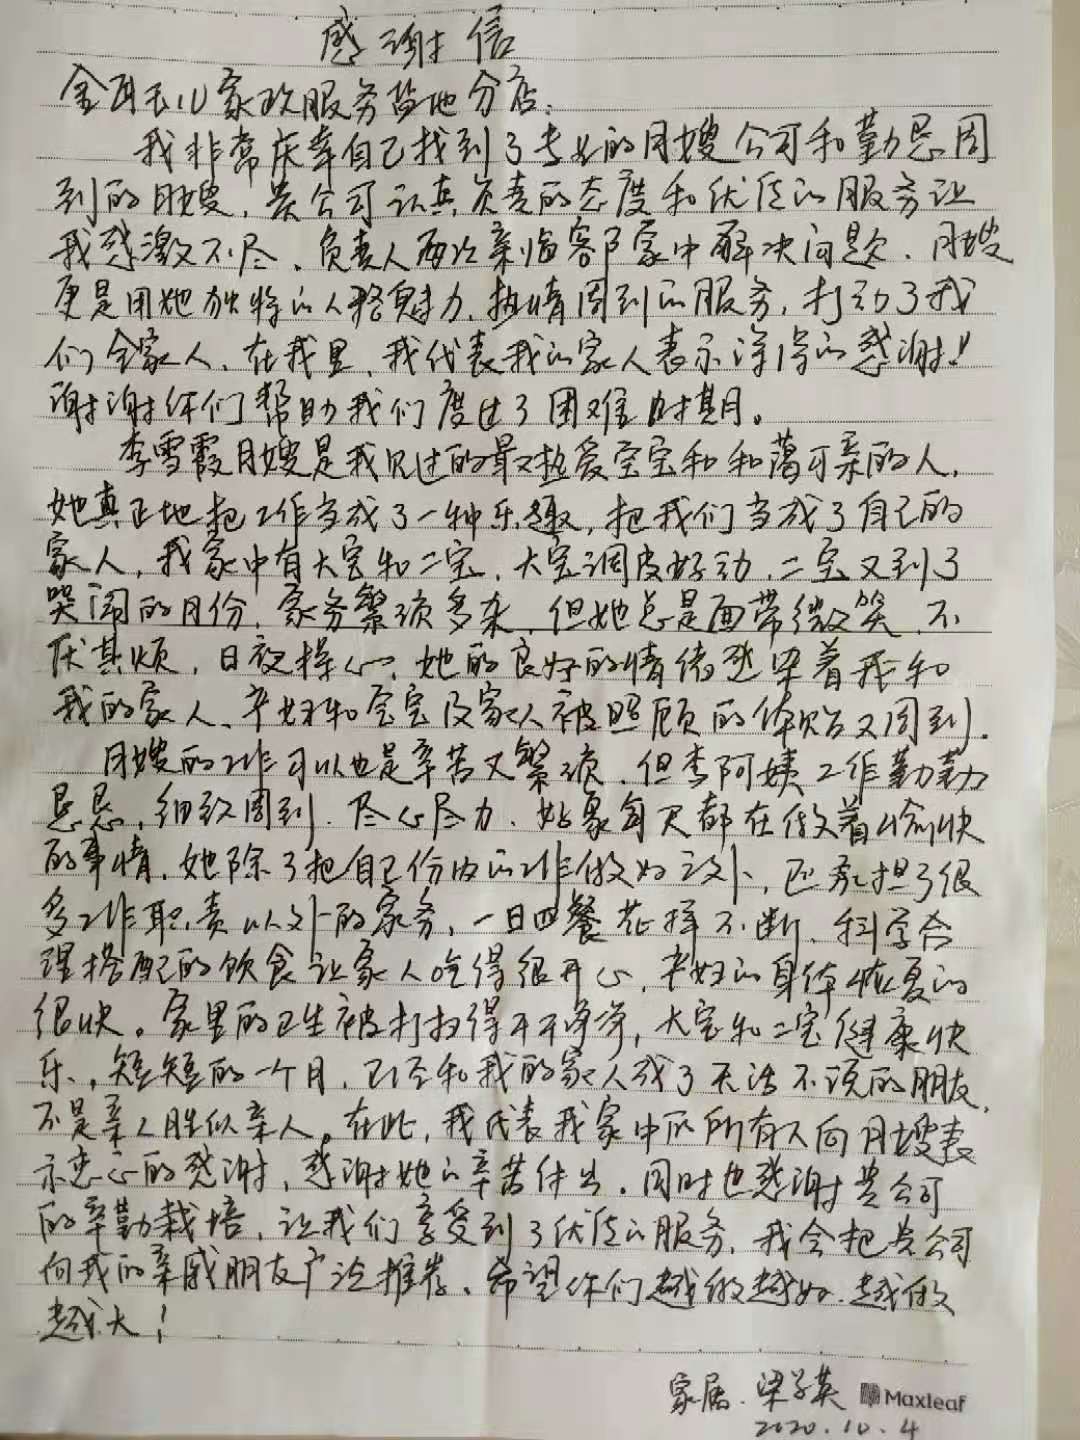 感谢信
家政服务盐地分店.
我非常庆幸自己找到了专业的月嫂公司和勤恳周
到的月嫂,贵公司认真负责的态度和优质的服务让
我感激不尽、负责人两次亲临客户家中解决问题、月嫂
更是用她独特的人格魅力,热情周到的服务,打动了我
们全家人、在我里、我代表我的家人表示深深的感谢!!
谢谢你们帮助我们度过了困难时期。
李雪霞月嫂是我见过的最热爱宝宝和和蔼可亲的人,
她真正地把工作当成了一种乐趣,把我们当成了自己的
家人,我家中有大宝和二宝、大宝调皮好动、二宝又到了
哭闹的月份,家务繁琐多杂,但她总是面带微笑、不
厌其烦,日夜操心,她的良好的情绪感染着我和
我的家人、产妇和宝宝及家人被照顾的体贴又周到.
月嫂的工作可以也是辛苦又繁琐,但李阿姨工作勤勤
恳恳,细致周到、尽心尽力、好象每天都在做着愉快
的事情,她除了把自己份内的工作做好之外,还承担了很
多工作职责以外的家务,一日四餐花样不断、科学合
理搭配的饮食让家人吃得很开心,产妇的身体恢复的
很快。家里的卫生被打扫得干干净净,大宝和二宝健康快
乐、短短的一个月,已经和我的家人成了无话不谈的朋友,
不是亲人胜似亲人。在此,我代表我家中的所有人向月嫂表
示衷心的感谢,感谢她的辛苦付出.同时也感谢贵公司
的辛勤栽培,让我们享受到了优质的服务,我会把贵公司
向我的亲戚朋友广泛推荐、希望你们越做越好、越做
越大!
家属.梁子英
Maxleaf
2020.10.4